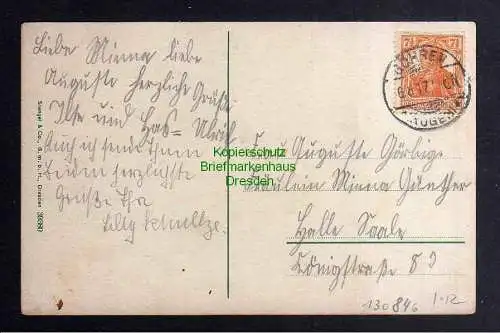 Liebe Minna liebe
Auguste herzliche Grüße
Ilse und
Auch ich sende Ihnen
beiden herzlichste
Grüße Ihr
Lilly
Stengel & Co., G. m. b. H., Dresden
7½ 7½
GÖHREN
RÜGEN
Kopierschutz
Briefmarkenhaus
Dresden
Frau Auguste Görbige
Fräulein Minna Günther
Halle Saale
Königstraße 83
130 846
1.12